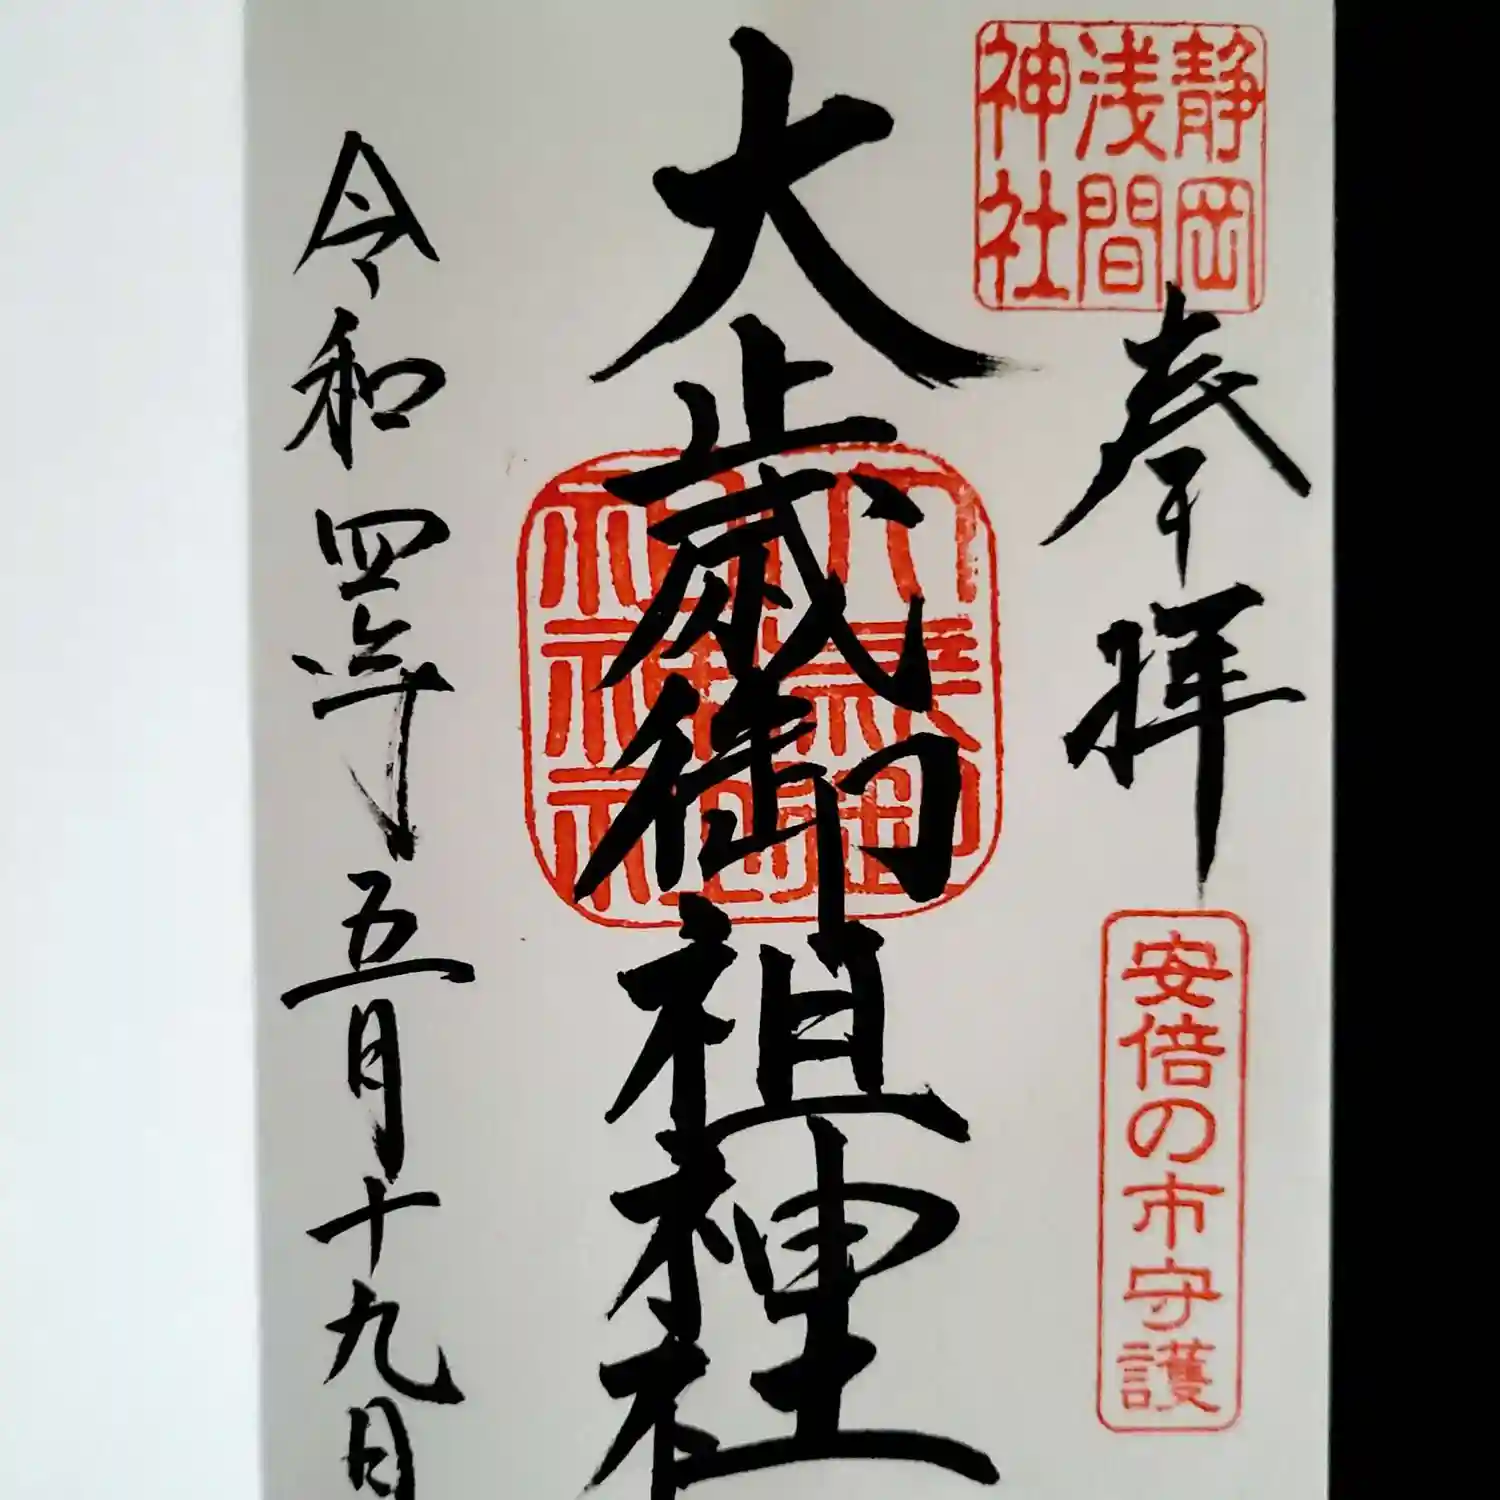 静岡
浅間
神社
奉拝
安倍の市守護
大歳御祖神社
大歳御
祖神社
令和四年五月十九日